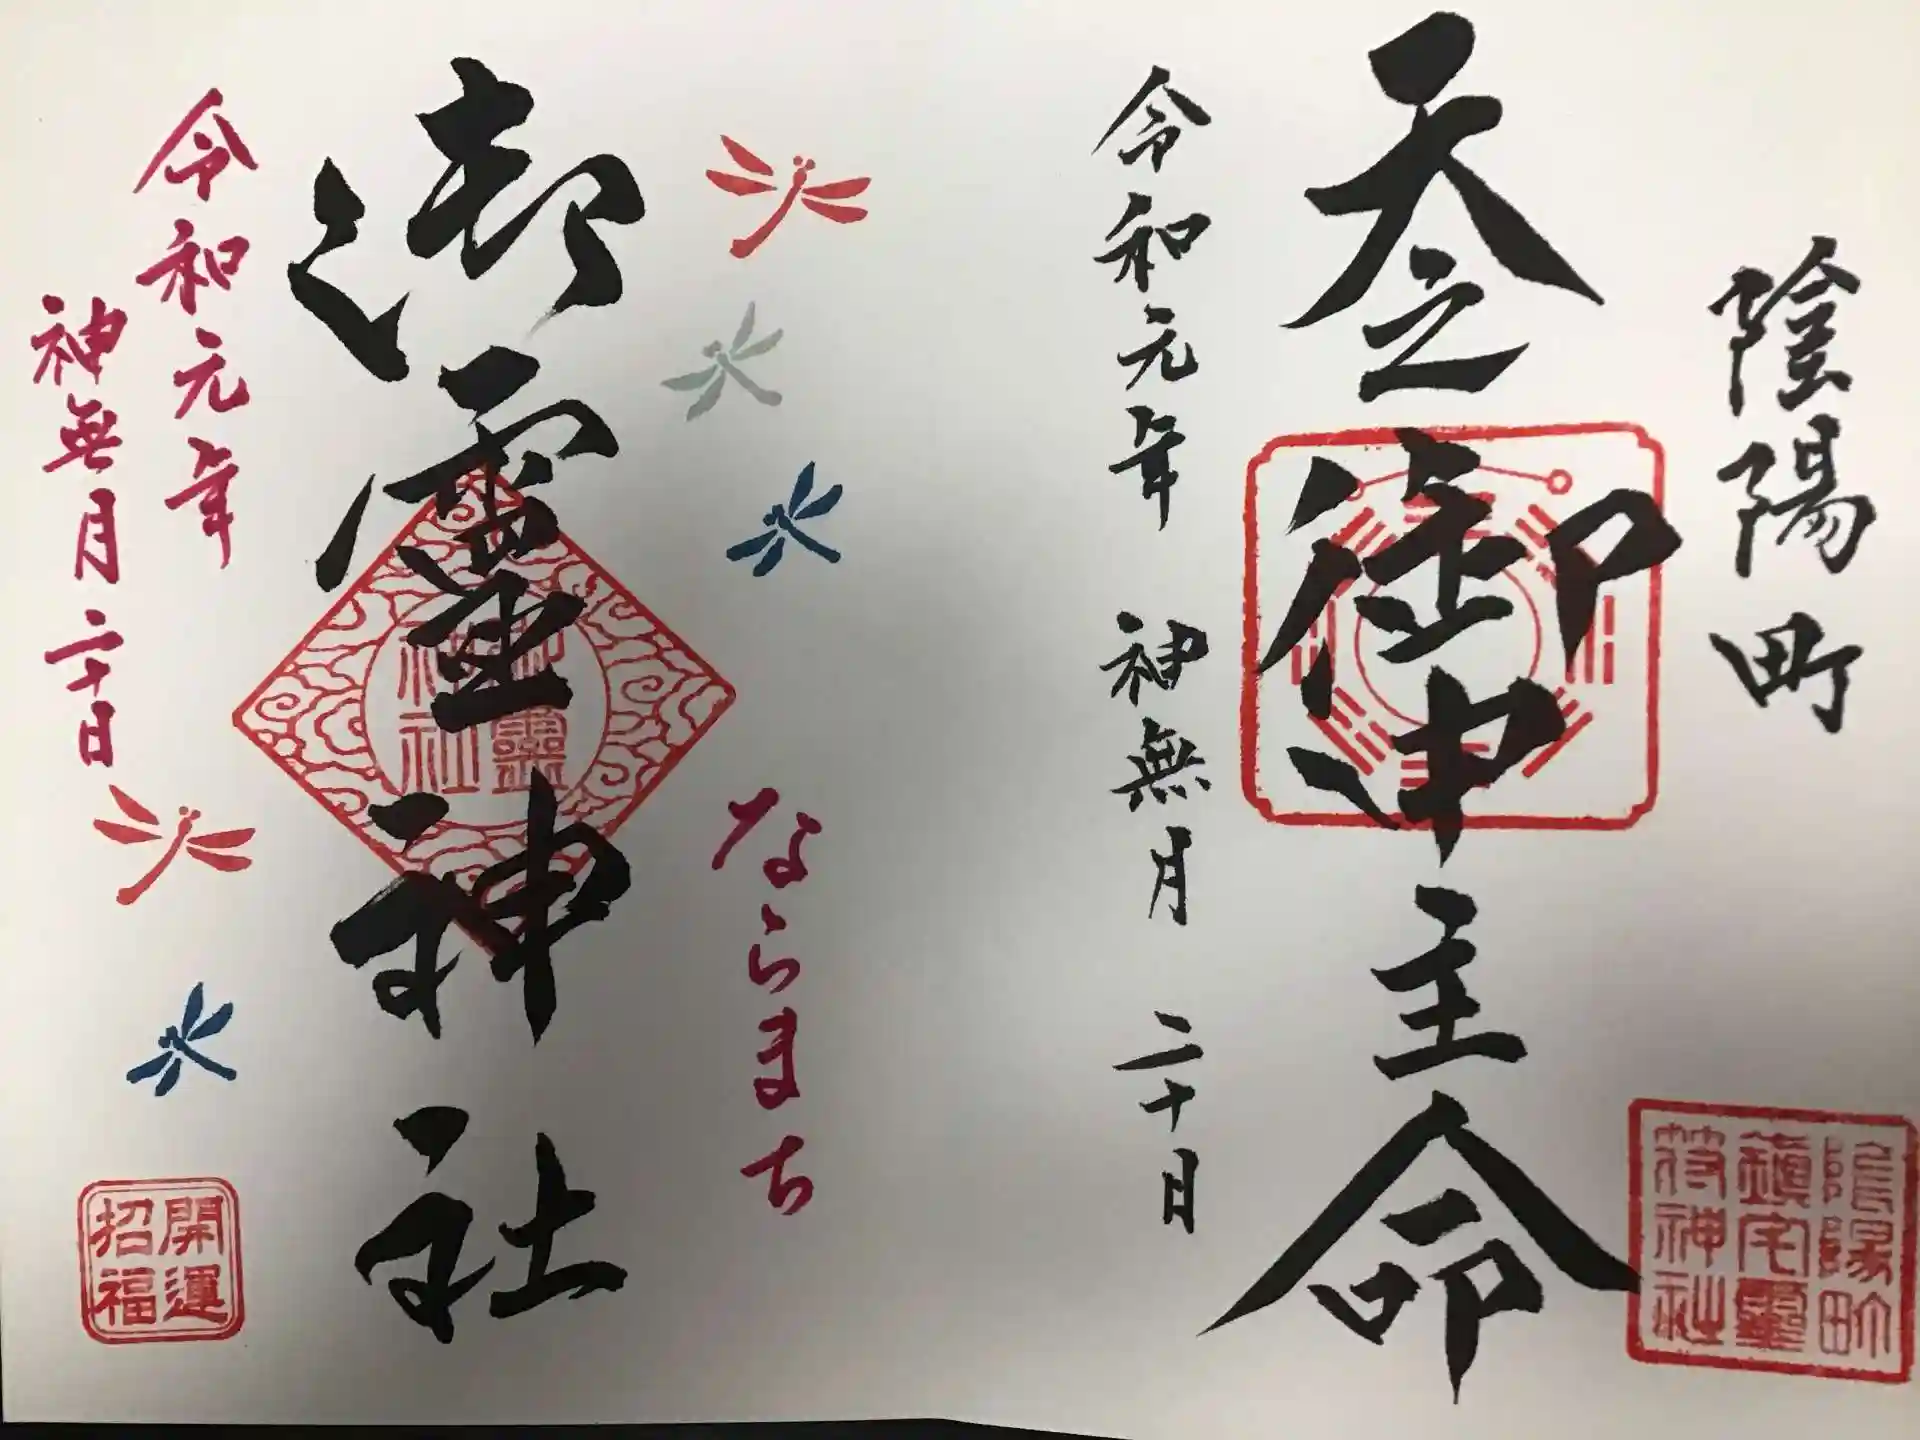 陰陽町
天之御中主命
令和元年 神無月 二十日
陰陽町
鎮宅霊
符神社
ならまち
御霊神社
令和元年
神無月二十日
開運
招福